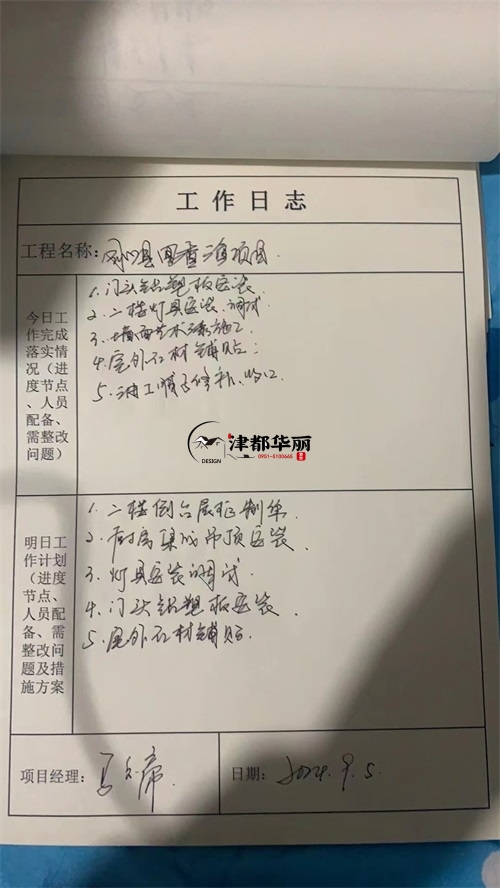 工作日志
工程名称：
今日工作完成落实情况（进度节点、人员配备、需整改问题）
1. 门头铝塑板安装
2. 二楼灯具安装、调试
3. 墙面艺术漆施工
4. 屋外石材铺贴
5. 油工顺色修补、收口
津都华丽
DESIGN
0951-5100665
明日工作计划（进度节点、人员配备、需整改问题及措施方案）
1. 二楼
2. 厨房集成吊顶安装
3. 灯具安装调试
4. 门头铝塑板安装
5. 屋外石材铺贴
项目经理：
日期：2024.9.5.